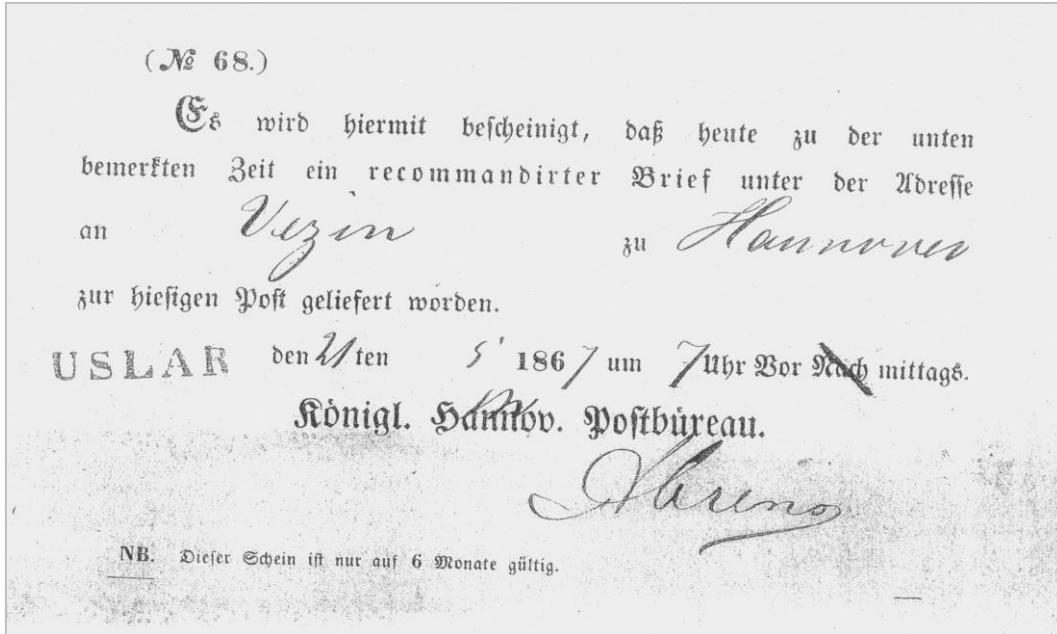 (№ 68.)
Es wird hiermit bescheinigt, daß heute zu der unten
bemerkten Zeit ein recommandirter Brief unter der Adresse
an Vezin zu Hannover
zur hiesigen Post geliefert worden.
USLAR den 21 ten 5' 1867 um 7 Uhr Vor Nach mittags.
Königl. Hannov. Postbüreau.
NB. Dieser Schein ist nur auf 6 Monate gültig.